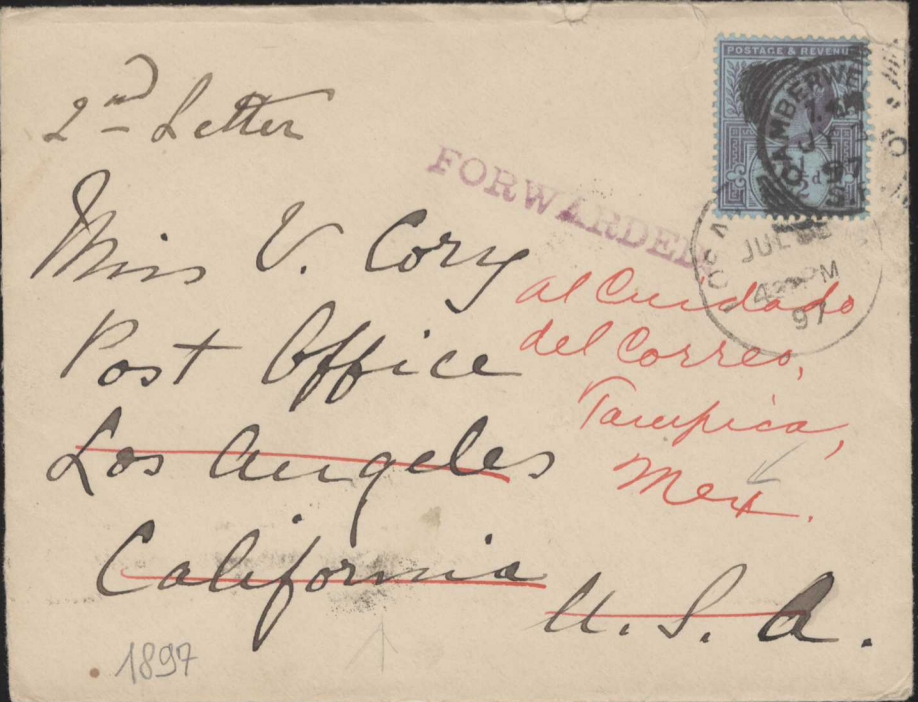 POSTAGE & REVENU
CAMBERWE
JY
97
S.E
1/2 d
2nd Letter
FORWARDED
JUL
4 PM
97
Miss V. Cory
Post Office
Los Angeles
California
U. S. A.
al Cuidado
del Correo,
Tampica,
Mex.
1897